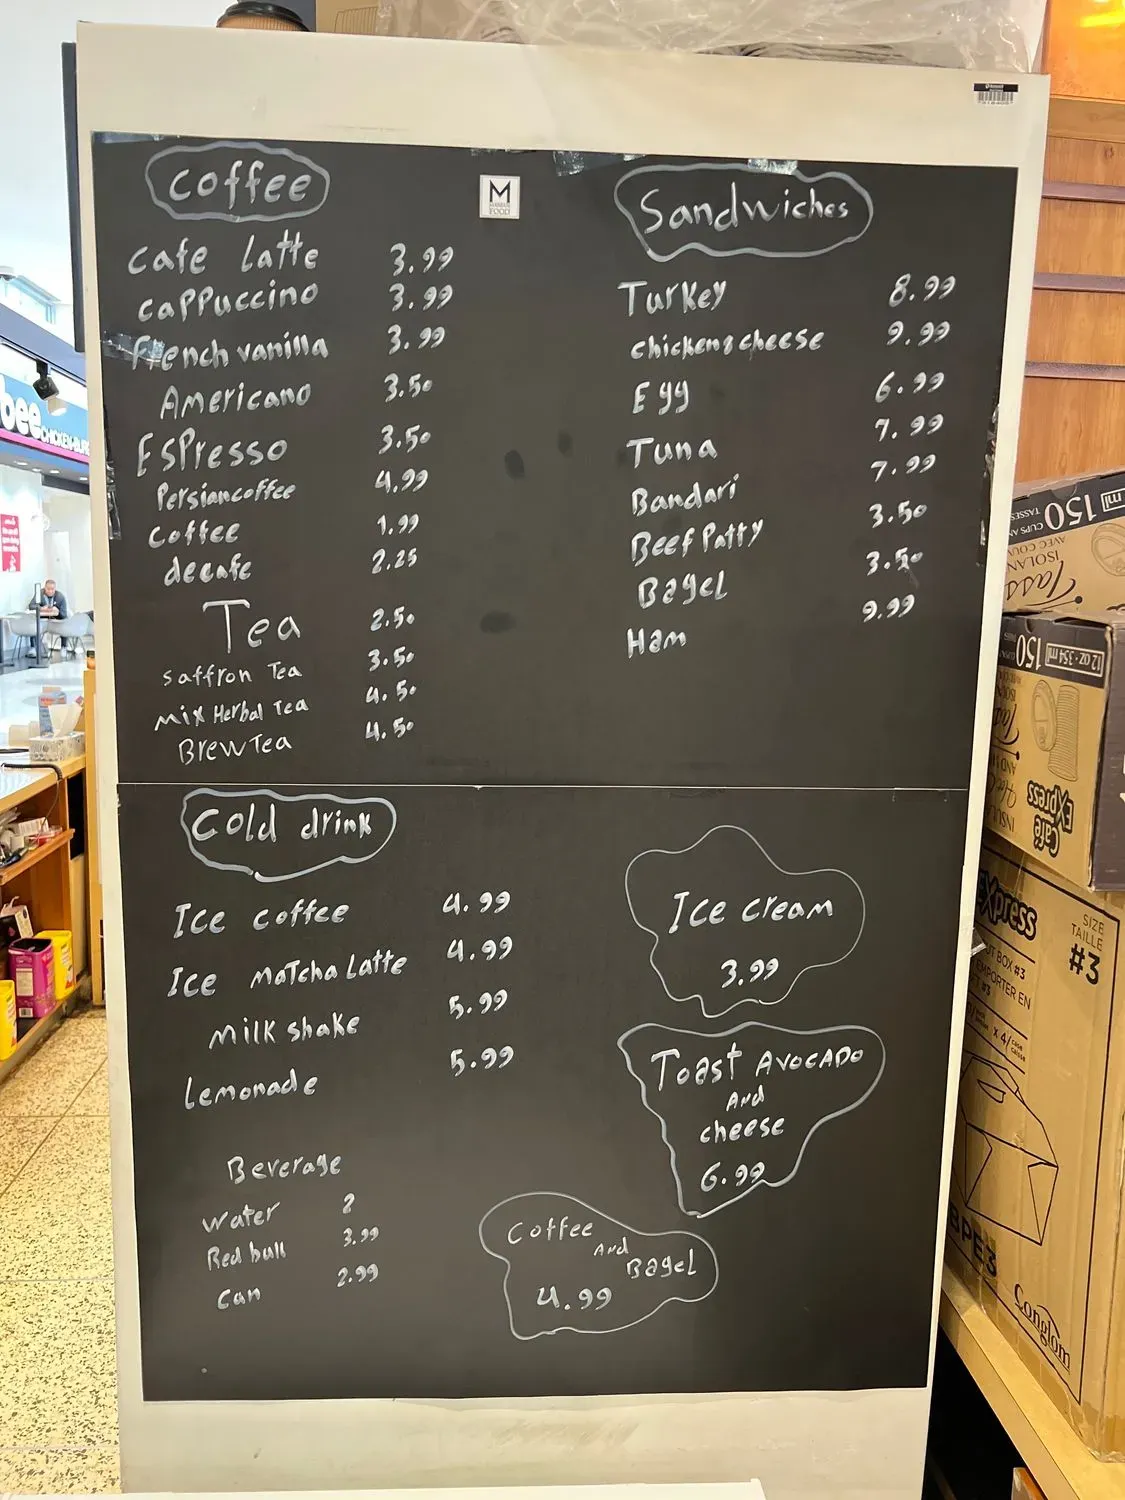 coffee
cafe latte 3.99
cappuccino 3.99
french vanilla 3.99
Americano 3.50
Espresso 3.50
Persian coffee 4.99
coffee 1.99
decafe 2.25
Tea 2.50
saffron Tea 3.50
mix Herbal Tea 4.50
Brew Tea 4.50
M
FOOD
Sandwiches
Turkey 8.99
chicken & cheese 9.99
Egg 6.99
Tuna 7.99
Bandari 7.99
Beef Patty 3.50
Bagel 3.50
Ham 9.99
cold drink
Ice coffee 4.99
Ice matcha Latte 4.99
milk shake 5.99
Lemonade 5.99
Beverage
water 2
Red bull 3.99
can 2.99
Ice cream
3.99
Toast Avocado
And
cheese
6.99
Coffee
And
Bagel
4.99
bee
150
150
12 oz • 354 ml
Café
Express
Express
SIZE
TAILLE
#3
BPE3
Conglom